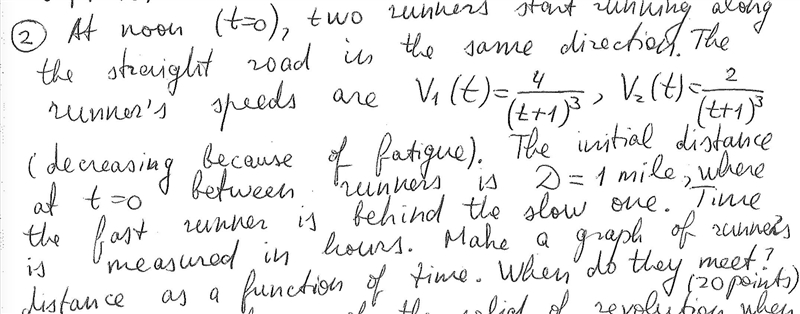 ② At noon (t=0), two runners start running along
the straight road in the same direction. The
runner's speeds are V₁(t)=4/(t+1)³, V₂(t)=2/(t+1)³
(decreasing because of fatigue). The initial distance
at t=0 between runners is D=1 mile, where
the fast runner is behind the slow one. Time
is measured in hours. Make a graph of runners
distance as a function of time. When do they meet?
(20 points)
the solid of revolution when